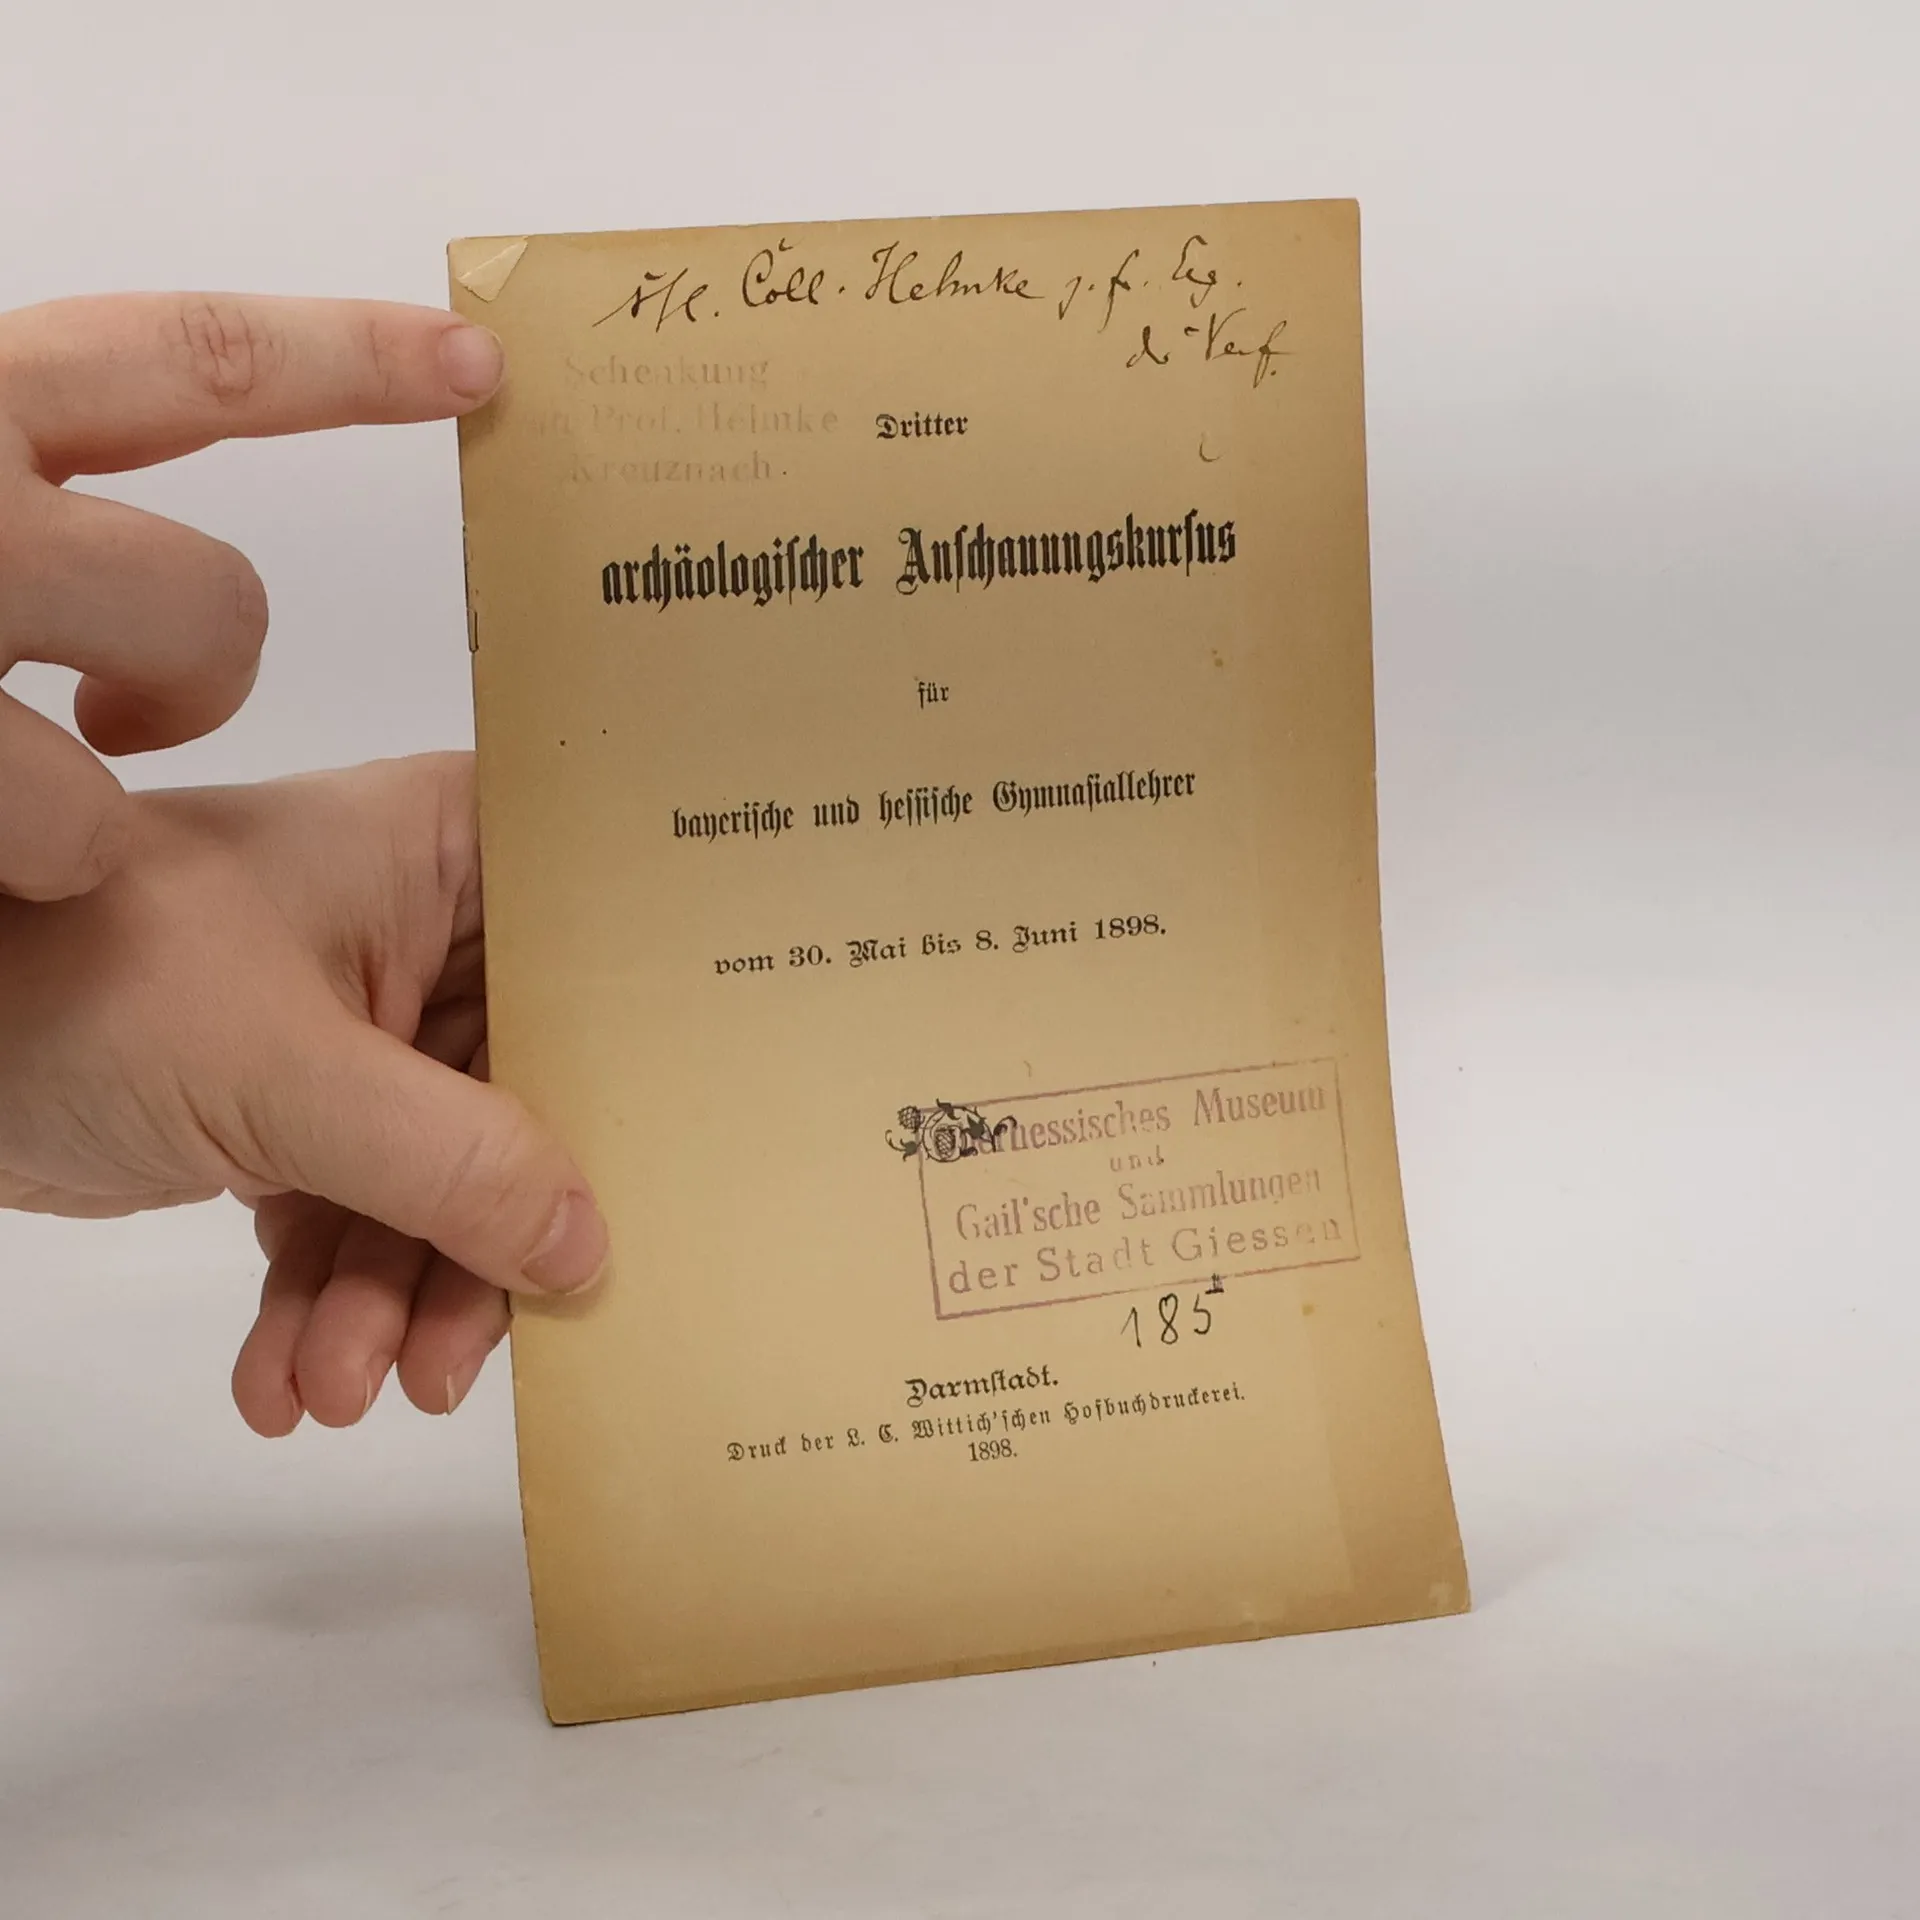 Coll. Helmke z. f. Erg.
d. Verf.
Schenkung
Prof. Helmke
Kreuznach.
Dritter
archäologischer Anschauungskursus
für
bayerische und hessische Gymnasiallehrer
vom 30. Mai bis 8. Juni 1898.
Oberhessisches Museum
und
Gail'sche Sammlungen
der Stadt Giessen
185
Darmstadt.
Druck der L. C. Wittich'schen Hofbuchdruckerei.
1898.